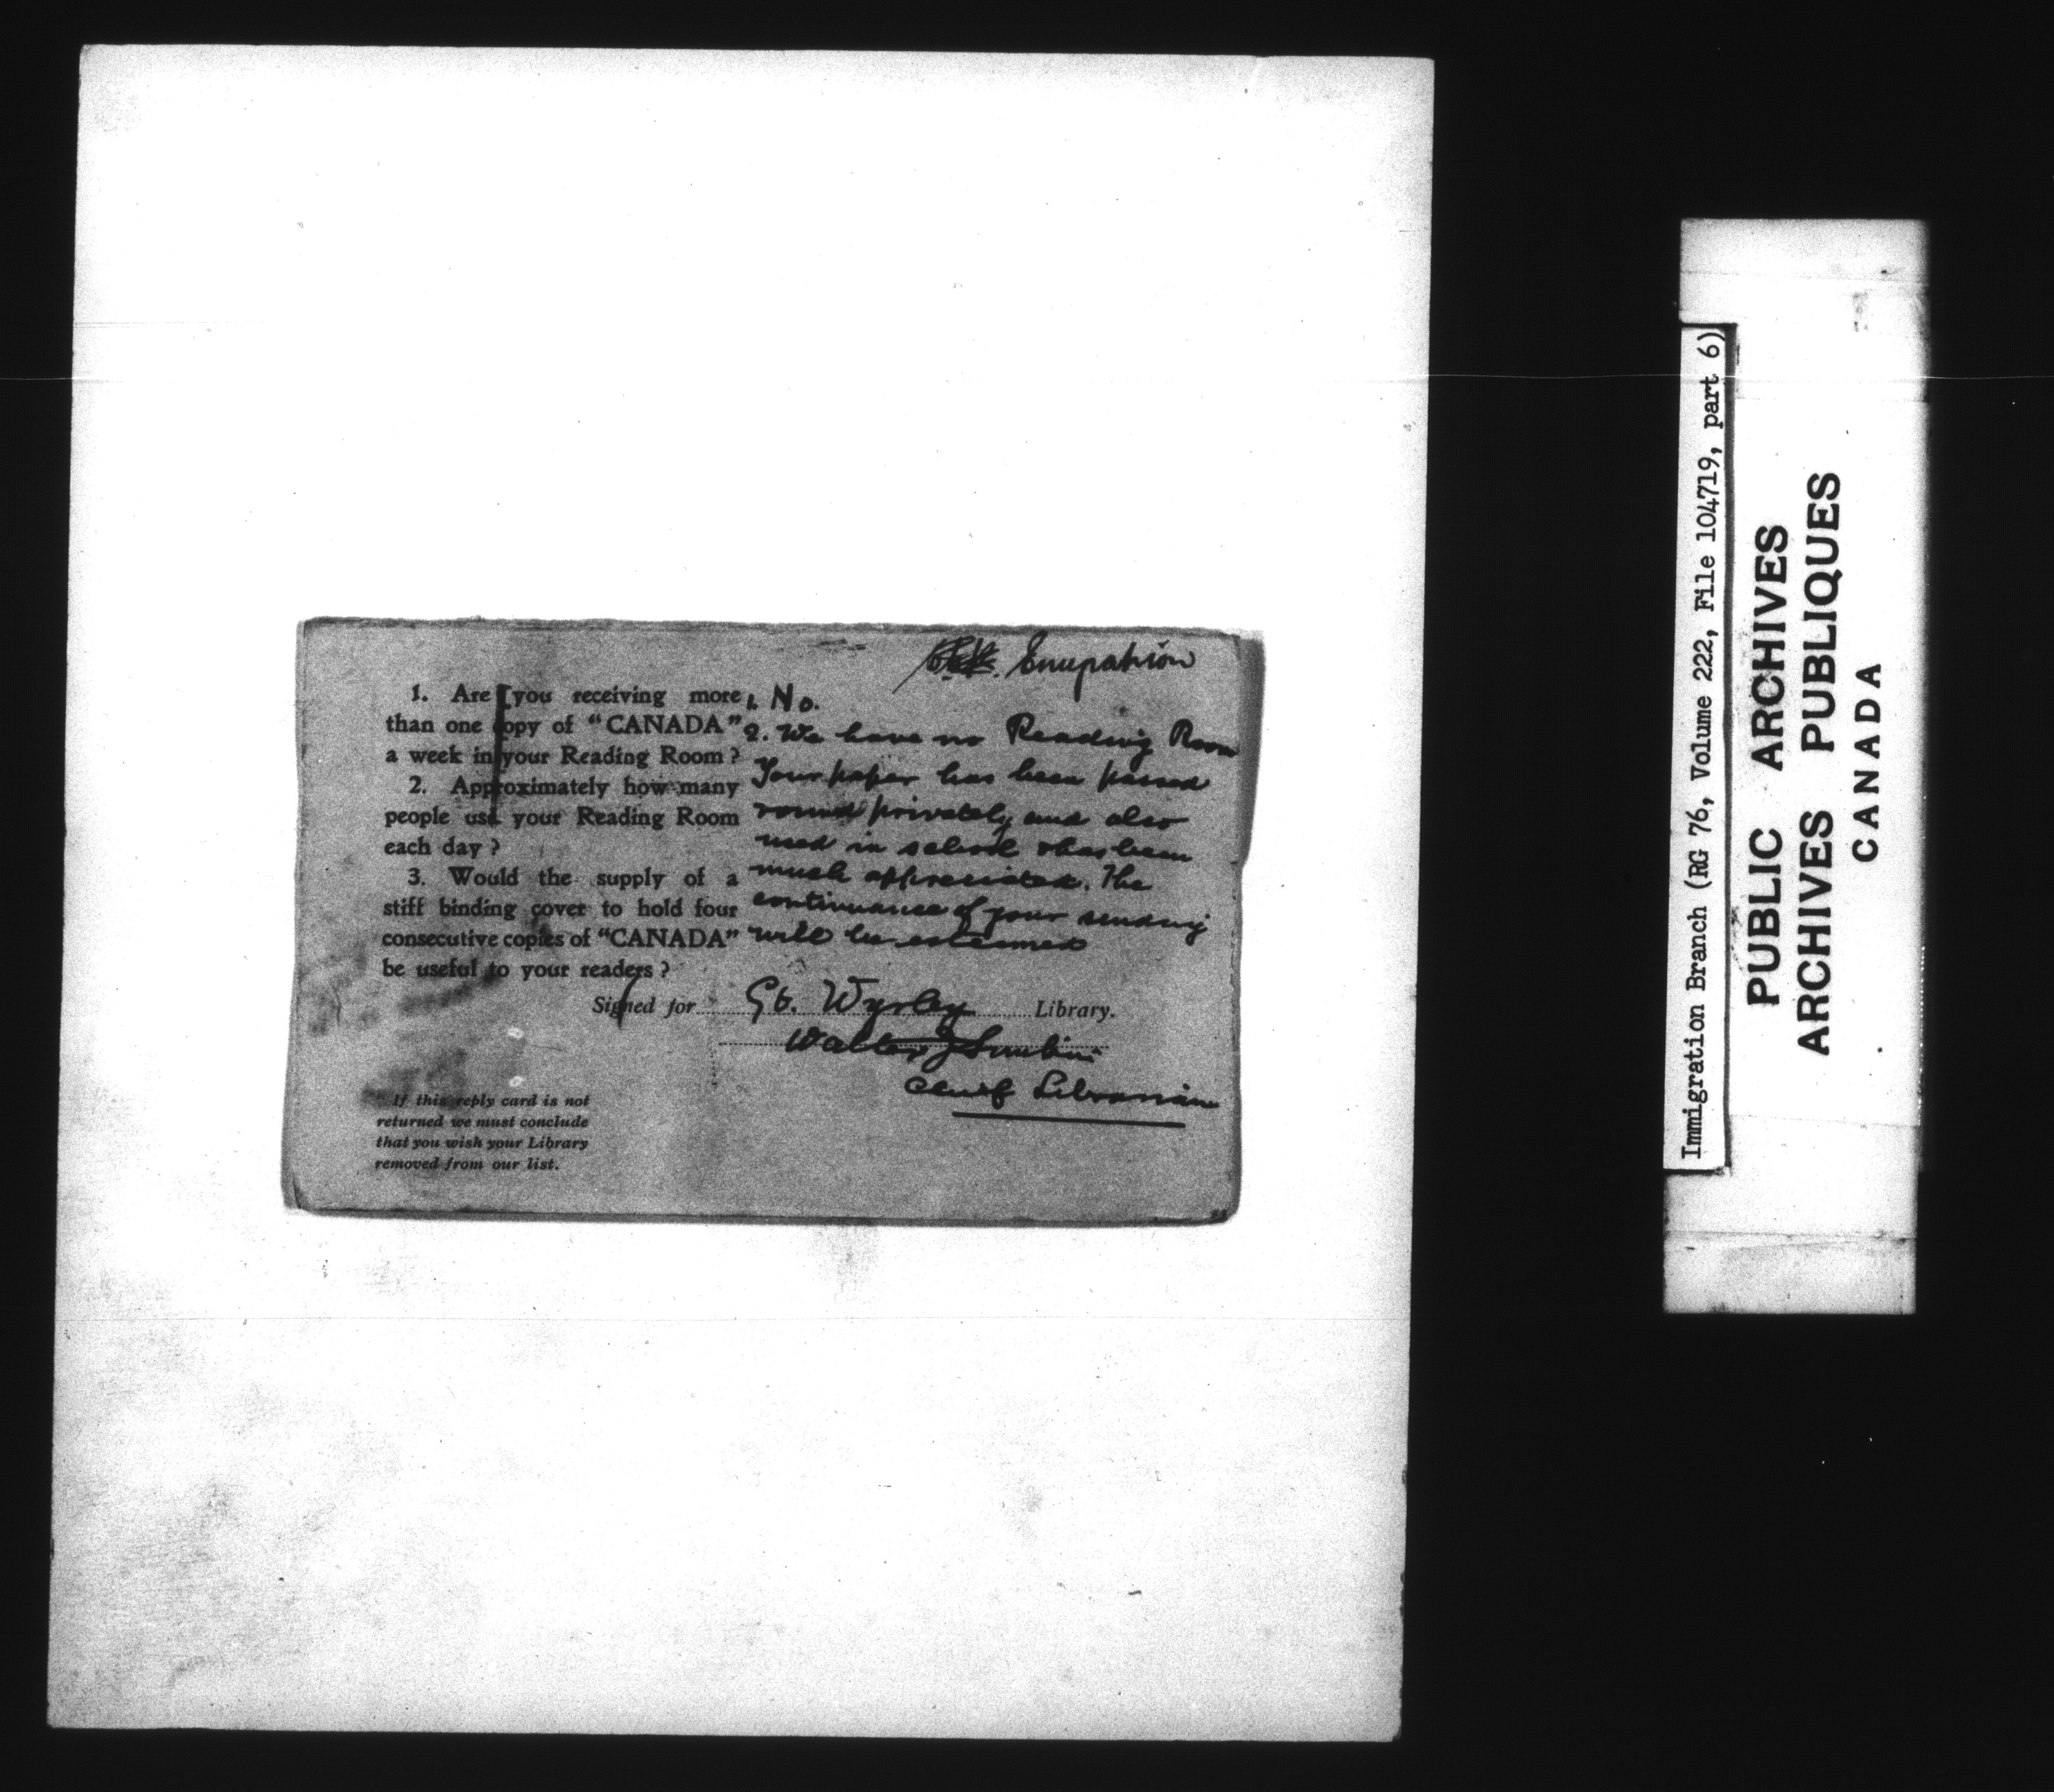 Emigration
1. Are you receiving more
than one copy of "CANADA"
a week in your Reading Room?
2. Approximately how many
people use your Reading Room
each day?
3. Would the supply of a
stiff binding cover to hold four
consecutive copies of "CANADA"
be useful to your readers?
1. No.
2. We have no Reading Room
Your paper has been passed
round privately and also
used in school & has been
much appreciated. The
continuance of your sending
will be esteemed
Signed for Gt. Wyrley Library.
Walter J
Chief Librarian
If this reply card is not
returned we must conclude
that you wish your Library
removed from our list.
Immigration Branch (RG 76, Volume 222, File 104719, part 6)
PUBLIC ARCHIVES
ARCHIVES PUBLIQUES
CANADA